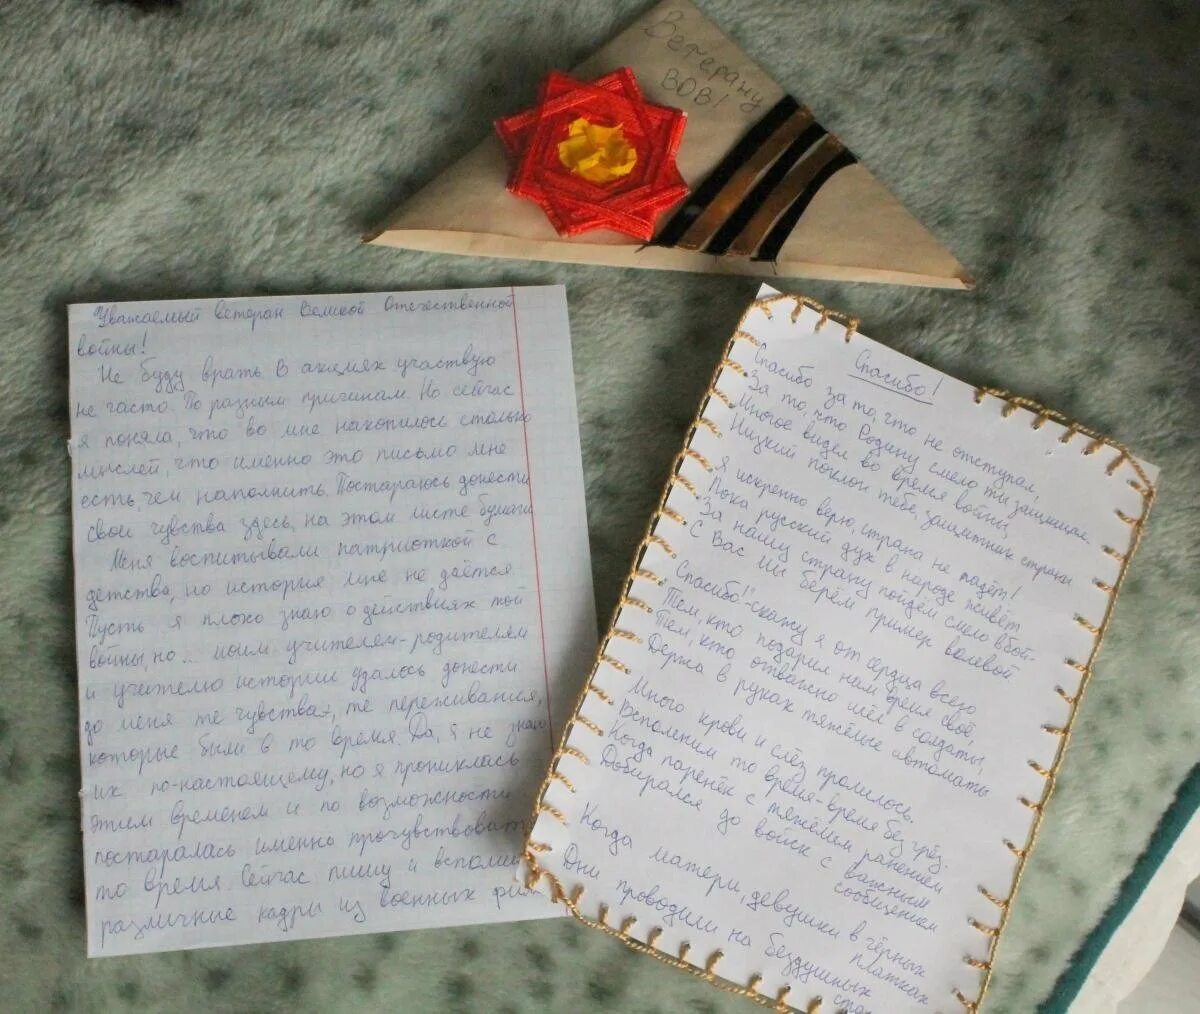 Ветерану
ВОВ!
Уважаемый ветеран Великой Отечественной
войны!
Не буду врать. В акциях участвую
не часто. По разным причинам. Но сейчас
я поняла, что во мне накопилось столько
мыслей, что именно это письмо мне
есть, чем наполнить. Постараюсь донести
свои чувства здесь, на этом листе бумаги.
Меня воспитывали патриоткой с
детства, но история мне не даётся.
Пусть я плохо знаю о действиях той
войны, но... моим учителем-родителям
и учителю истории удалось донести
до меня те чувства, те переживания,
которые были в то время. Да, я не знаю
их по-настоящему, но я прониклась
этим временем и по возможности
постаралась именно прочувствовать
то время. Сейчас пишу и
различные кадры из военных
Спасибо!
Спасибо за то, что не отступал,
За то, что Родину смело ты защищал.
Многое видел во время войны,
Низкий поклон тебе, защитник страны
Я искренно верю, страна не падёт!
Пока русский дух в народе живёт
За нашу страну пойдём смело в бой-
С Вас мы берём пример волевой
"Спасибо!"-скажу я от сердца всего
Тем, кто подарил нам время своё,
Тем, кто отважно шёл в солдаты,
Держа в руках тяжёлые автоматы
Много крови и слёз пролилось.
Вспомним то время-время без грёз.
Когда паренёк с тяжёлым ранением
Добирался до войск с важным
сообщением
Когда матери, девушки в чёрных
платках
Дни проводили на бездушных